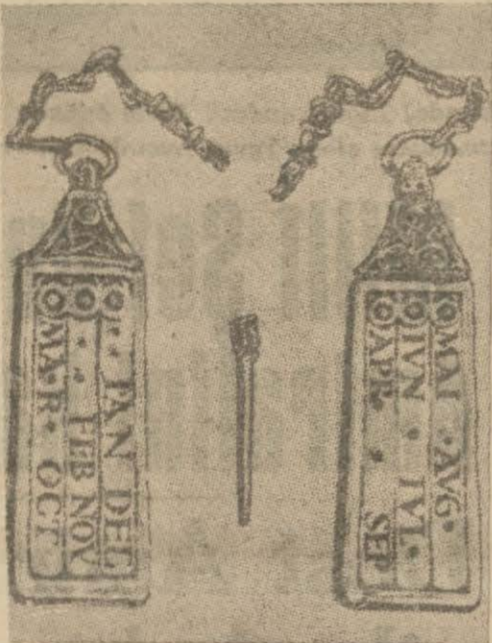 · · IAN DEC
· · FEB NOV
MA·R· OCT
MAI · AVG ·
IVN · IVL ·
APR· · SEP